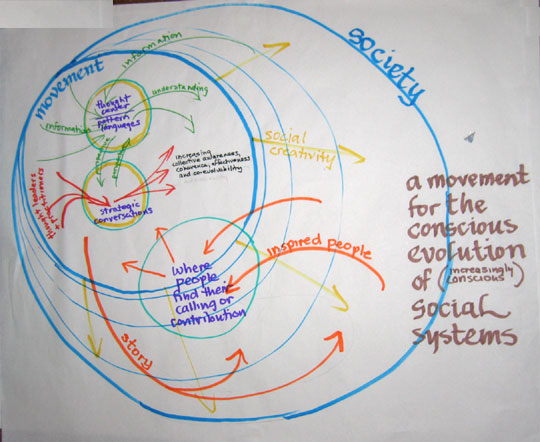 society
movement
information
understanding
thought
center
pattern
languages
information
social
creativity
increasing
collective awareness,
coherence, effectiveness
and co-evolvability
thought leaders
+ practitioners
strategic
conversations
inspired people
where
people
find their
calling or
contribution
story
a movement
for the
conscious
evolution
of (increasingly conscious)
social
systems